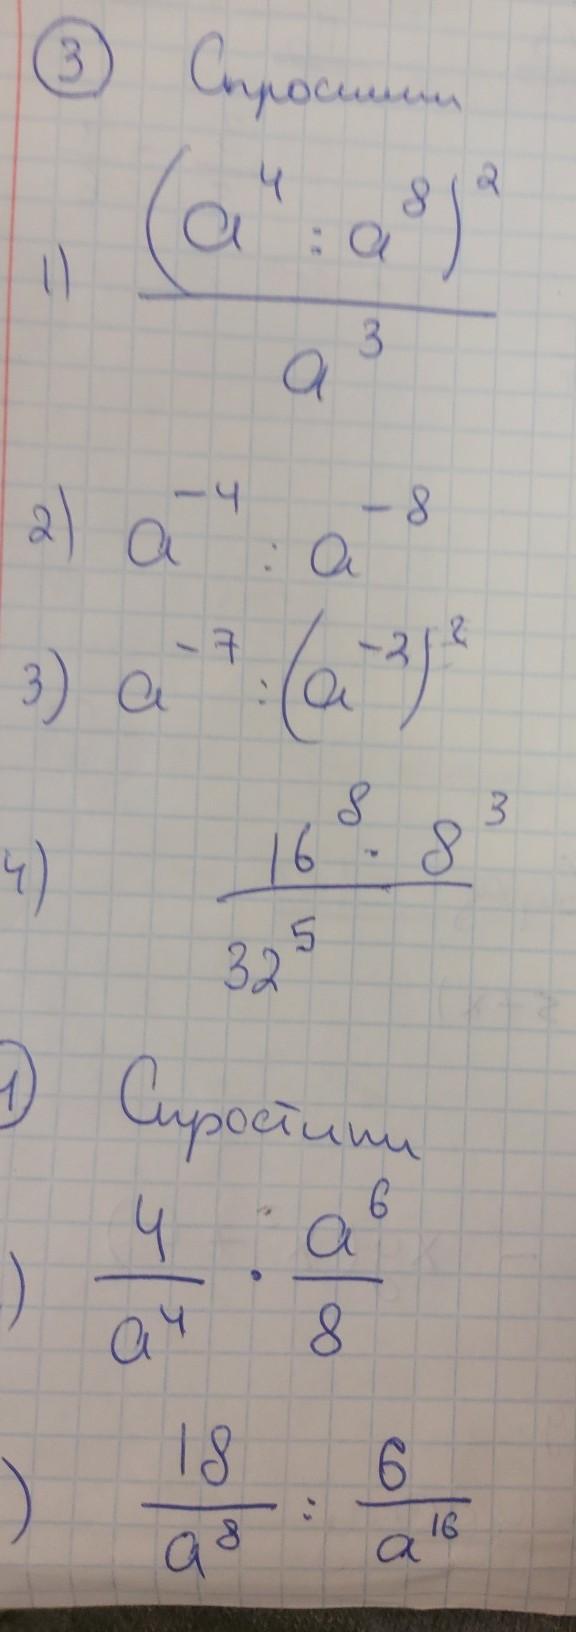 ③ Спростити
1) (a⁴ : a⁸)² / a³
2) a⁻⁴ : a⁻⁸
3) a⁻⁷ : (a⁻²)²
4) 16⁸ · 8³ / 32⁵
1) Спростити
) 4/a⁴ · a⁶/8
) 18/a⁸ : 6/a¹⁶